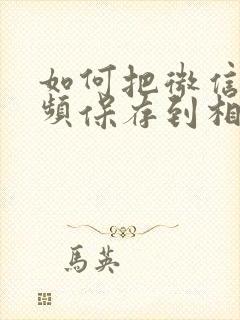 如何把微信
频保存到相
馬英